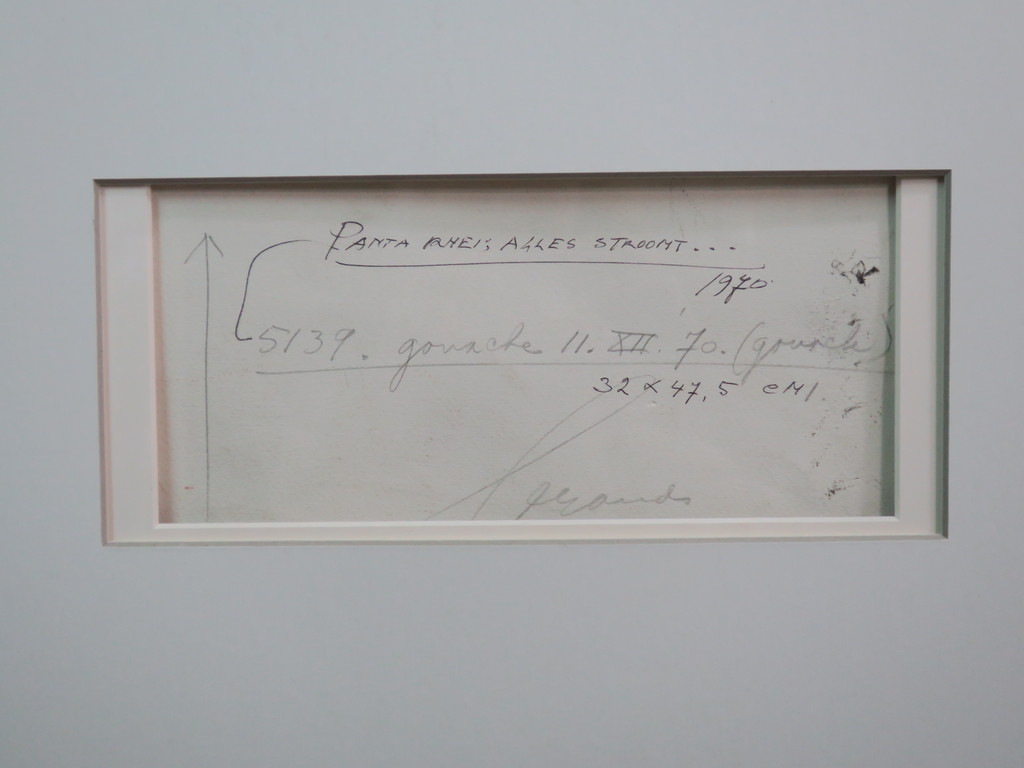 PANTA RHEI; ALLES STROOMT...
1970
5139. gouache 11. XII. 70. (gouache)
32 x 47,5 cm.